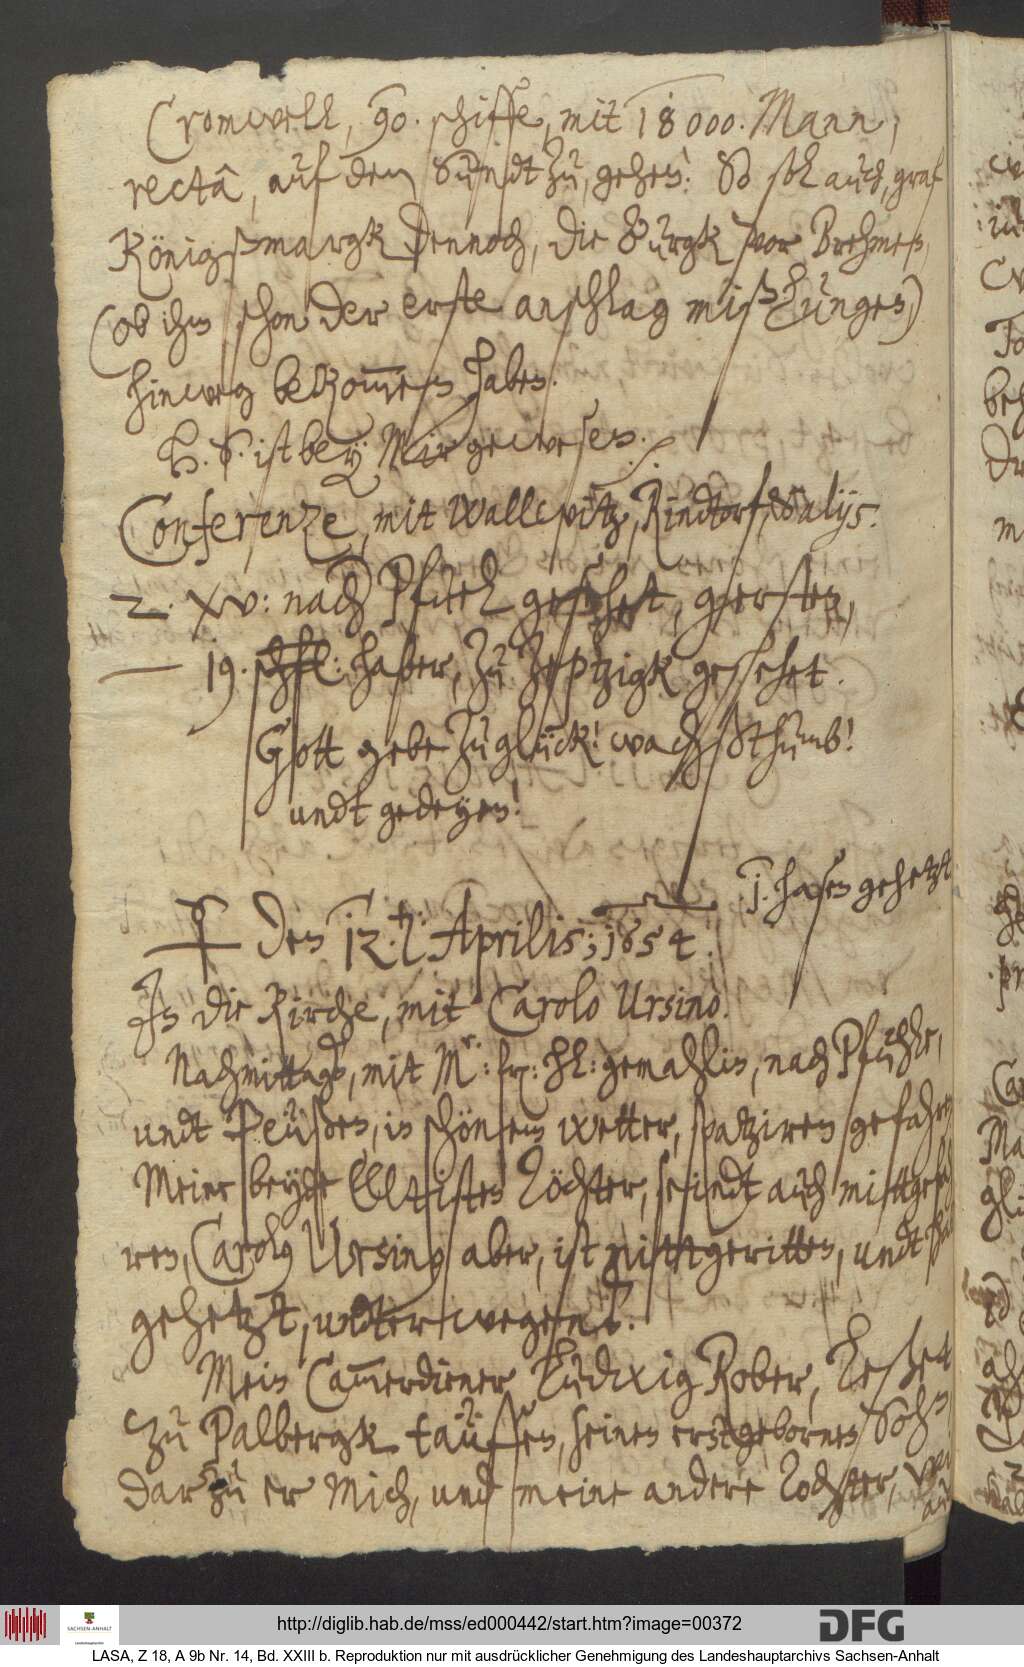 Cromwell, 90. schiffe, mit 18000. Mann,
rectâ, auf den Sundt zu, gehen! So soll auch, graf
Königßmargk dennoch, die Burgk vor Brehmen,
(ob ihm schon der erste anschlag mißlungen)
hinweg bekom̄en haben.
H. S. ist bey Mir gewesen.
Conferenze, mit Wallwitz, Rindtorf, Salijs.
2. XV: nach Pfuel geschickt, gersten,
— 19. schfl: haber, zu Zeptzigk geseet.
Gott gebe zu glück! wachßthumb!
undt gedeyen!
1. hasen gehetzt
Den 12. Aprilis; 1654.
In die Kirche, mit Carolo Ursino.
Nachmittagß, mit Mr: fr: hl: gemahlin, nach Pfuhle,
undt Peußen, in schönem wetter, spatziren gefahren
Meine beyde Elltisten Töchter, seindt auch mittgefah¬
ren, Carolus Ursinus aber, ist mittgeritten, undt hat
gehetzt, undterwegens.
Mein Cam̄erdiener Ludwig Rober, leßet
zu Palbergk täuffen, seinen erstgebornen Sohn
darzu er Mich, und meine andere Tochter,
http://diglib.hab.de/mss/ed000442/start.htm?image=00372
DFG
SACHSEN-ANHALT
Landeshauptarchiv
LASA, Z 18, A 9b Nr. 14, Bd. XXIII b. Reproduktion nur mit ausdrücklicher Genehmigung des Landeshauptarchivs Sachsen-Anhalt